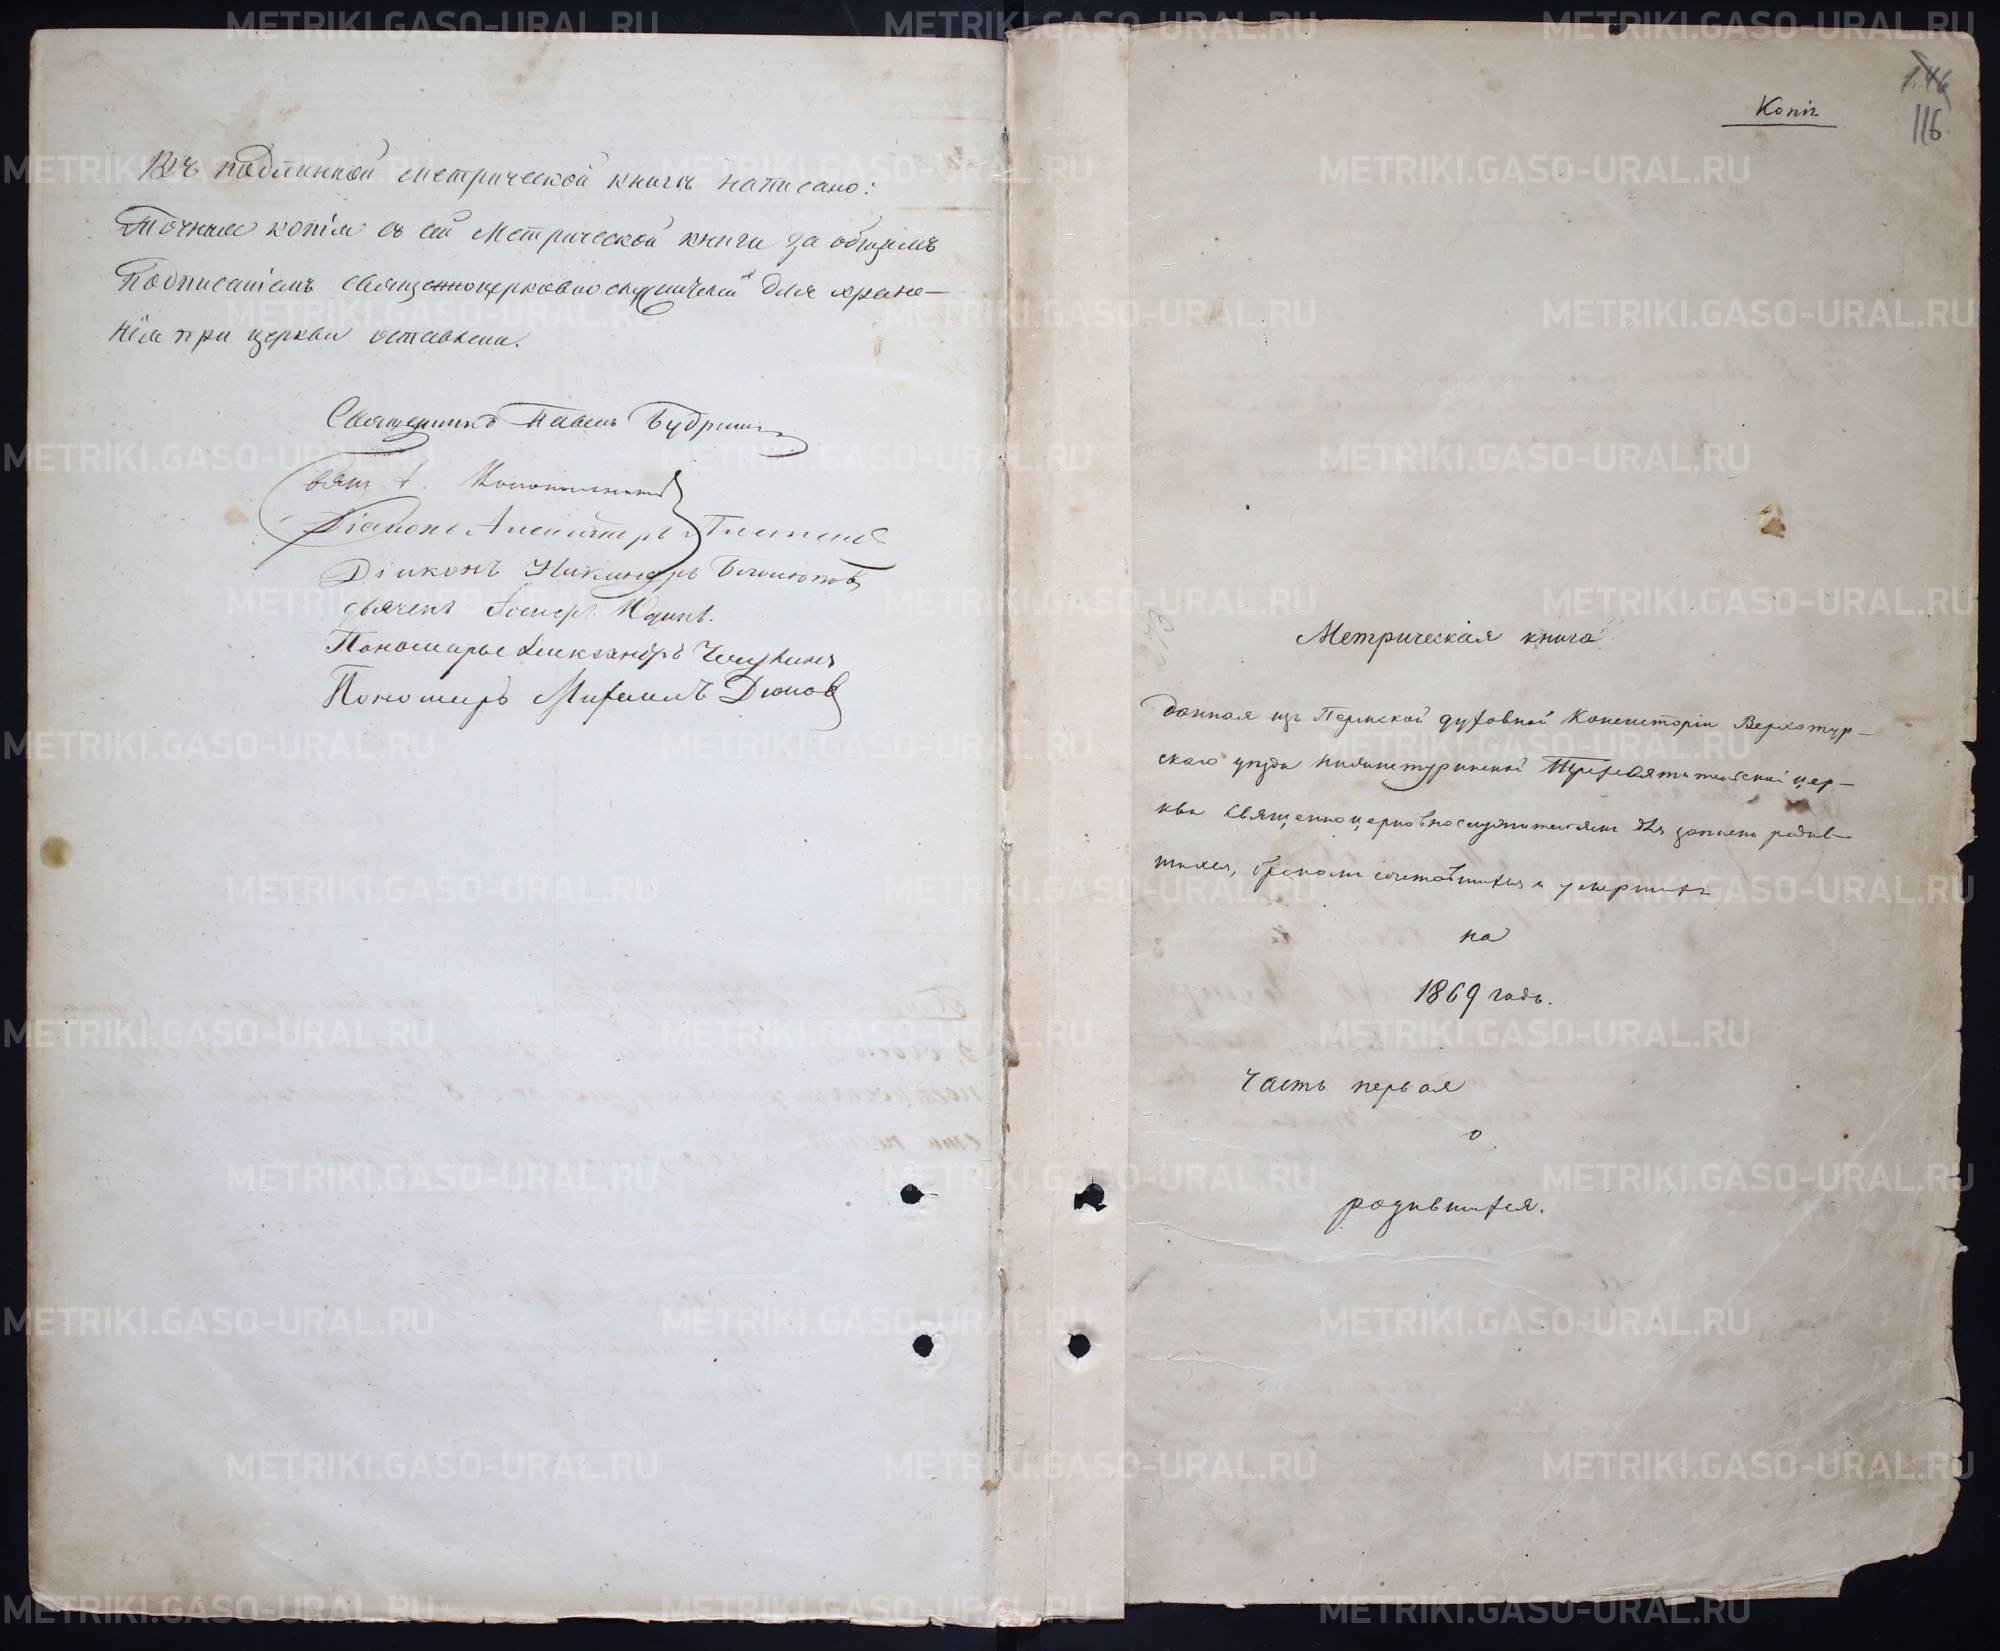 Въ подлинной метрической книгѣ написано:
Точная копія съ сей Метрической книги за общимъ
подписаніемъ священноцерковнослужителей для хране-
нія при церкви оставлена.
Священникъ Павелъ Будринъ
Свящ А.
Діаконъ Александръ
Діаконъ Никандръ
дьячекъ Юдинъ.
Пономарь Александръ
Пономарь Михаилъ
Копія
146
116
Метрическая книга
данная изъ Пермской духовной Консисторіи Верхотур-
скаго уѣзда Нижнетуринской Трехсвятительской цер-
кви священноцерковнослужителямъ для записи родив-
шихся, бракомъ сочетавшихся и умершихъ
на
1869 годъ.
Часть первая
о
родившихся.
METRIKI.GASO-URAL.RU